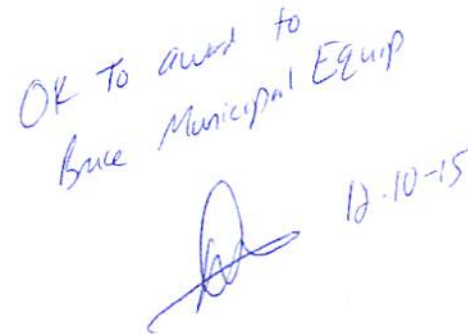 OK To award to
Bruce Municipal Equip
12-10-15